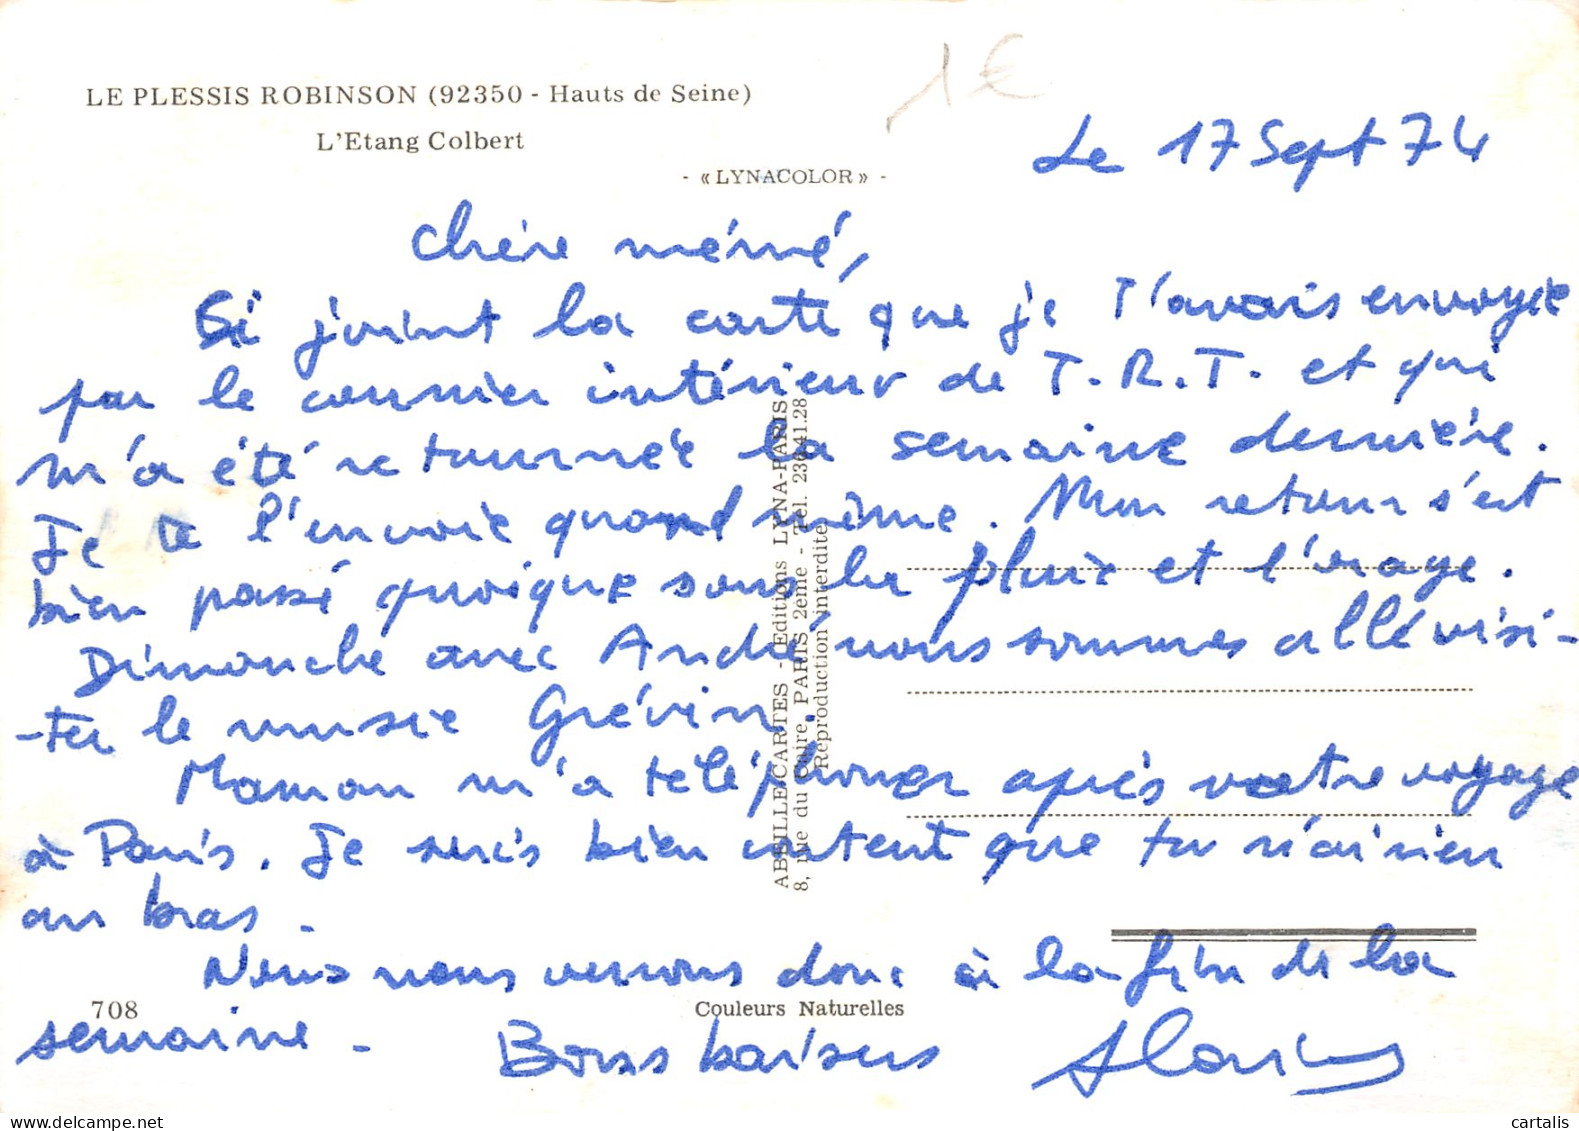 1€
LE PLESSIS ROBINSON (92350 - Hauts de Seine)
L'Etang Colbert
- « LYNACOLOR » -
Le 17 Sept 74
Chère mémé,
Ci joint la carte que je t'avais envoyée
par le courrier intérieur de T.R.T. et qui
m'a été retournée la semaine dernière.
Je te l'envoie quand même. Mon retour s'est
bien passé quoique sous la pluie et l'orage.
Dimanche avec André nous sommes allé visi-
-ter le musée Grévin.
Maman m'a téléphoner après votre voyage
à Paris. Je suis bien content que tu n'ai rien
au bras.
Nous nous verrons donc à la fin de la
semaine. Bons baisers
ABEILLE-CARTES - Editions LYNA-PARIS
8, rue du Caire, PARIS 2ème - Tél. 236.41.28
Reproduction interdite
708
Couleurs Naturelles
delcampe.net
cartalis